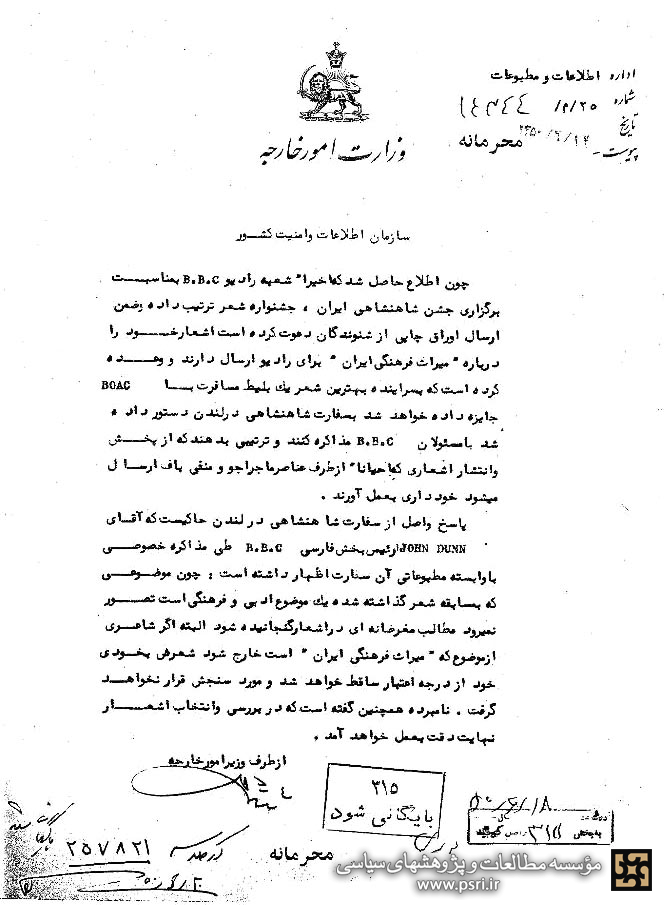 اداره اطلاعات و مطبوعات
شماره
تاریخ
پیوست
محرمانه
وزارت امور خارجه
سازمان اطلاعات و امنیت کشور
چون اطلاع حاصل شد که اخیرا" شعبه رادیو B.B.C بمناسبت
برگزاری جشن شاهنشاهی ایران ، جشنواره شعر ترتیب داده و ضمن
ارسال اوراق چاپی از شنوندگان دعوت کرده است اشعار خود را
درباره "میراث فرهنگی ایران " برای رادیو ارسال دارند و وعده
کرده است که بسراینده بهترین شعر یك بلیط مسافرت با BOAC
جایزه داده خواهد شد بسفارت شاهنشاهی در لندن دستور داده
شد با مسئولان B.B.C مذاکره کنند و ترتیبی بدهند که از پخش
وانتشار اشعاری که احیانا" از طرف عناصر ماجراجو و منفی باف ارسال
میشود خود داری بعمل آورند .
پاسخ واصل از سفارت شاهنشاهی در لندن حاکیست که آقای
JOHN DUNN رئیس بخش فارسی B.B.C طی مذاکره خصوصی
با وابسته مطبوعاتی آن سفارت اظهار داشته است : چون موضوعی
که بمسابقه شعر گذاشته شده یك موضوع ادبی و فرهنگی است تصور
نمیرود مطالب مغرضانه ای در اشعار گنجانیده شود البته اگر شاعری
از موضوع که "میراث فرهنگی ایران " است خارج شود شعرش بخودی
خود از درجه اعتبار ساقط خواهد شد و مورد سنجش قرار نخواهد
گرفت . نامبرده همچنین گفته است که در بررسی وانتخاب اشعار
نهایت دقت بعمل خواهد آمد .
از طرف وزیر امور خارجه
۳۱۵
بایگانی شود
۵۰/۶/۱۸
۲۵۷۸۲۱
محرمانه
مؤسسه مطالعات و پژوهشهای سیاسی
www.psri.ir